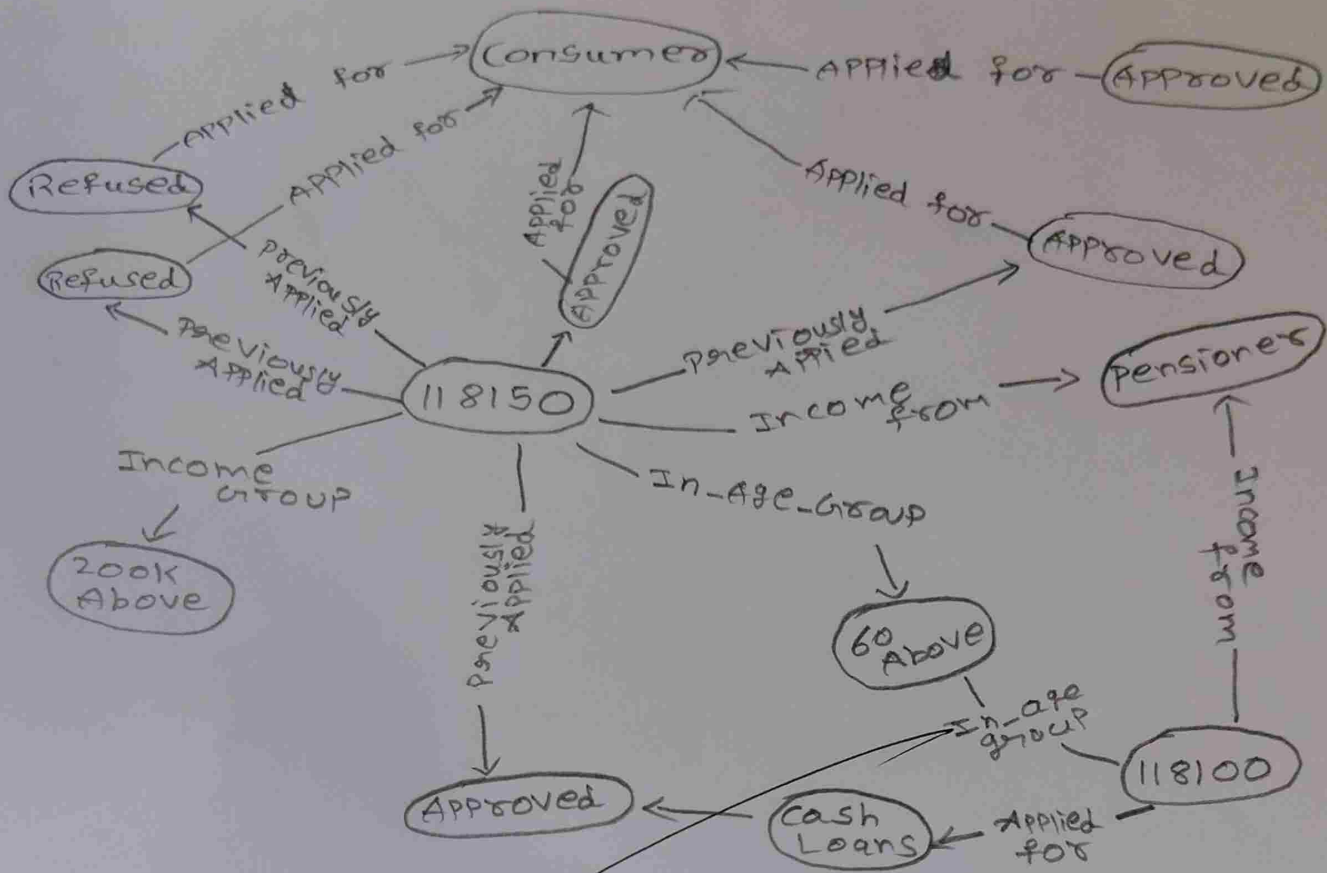 Consumer
Applied for
Applied for
Approved
Applied for
Refused
Applied
for
Approved
Applied for
Approved
Refused
Previously
Applied
Previously
Applied
118150
Previously
Appied
Income
from
Pensioner
Income
Group
In_Age_Group
Income
from
200K
Above
Previously
Applied
60
Above
In_age
group
118100
Approved
Cash
Loans
Applied
for